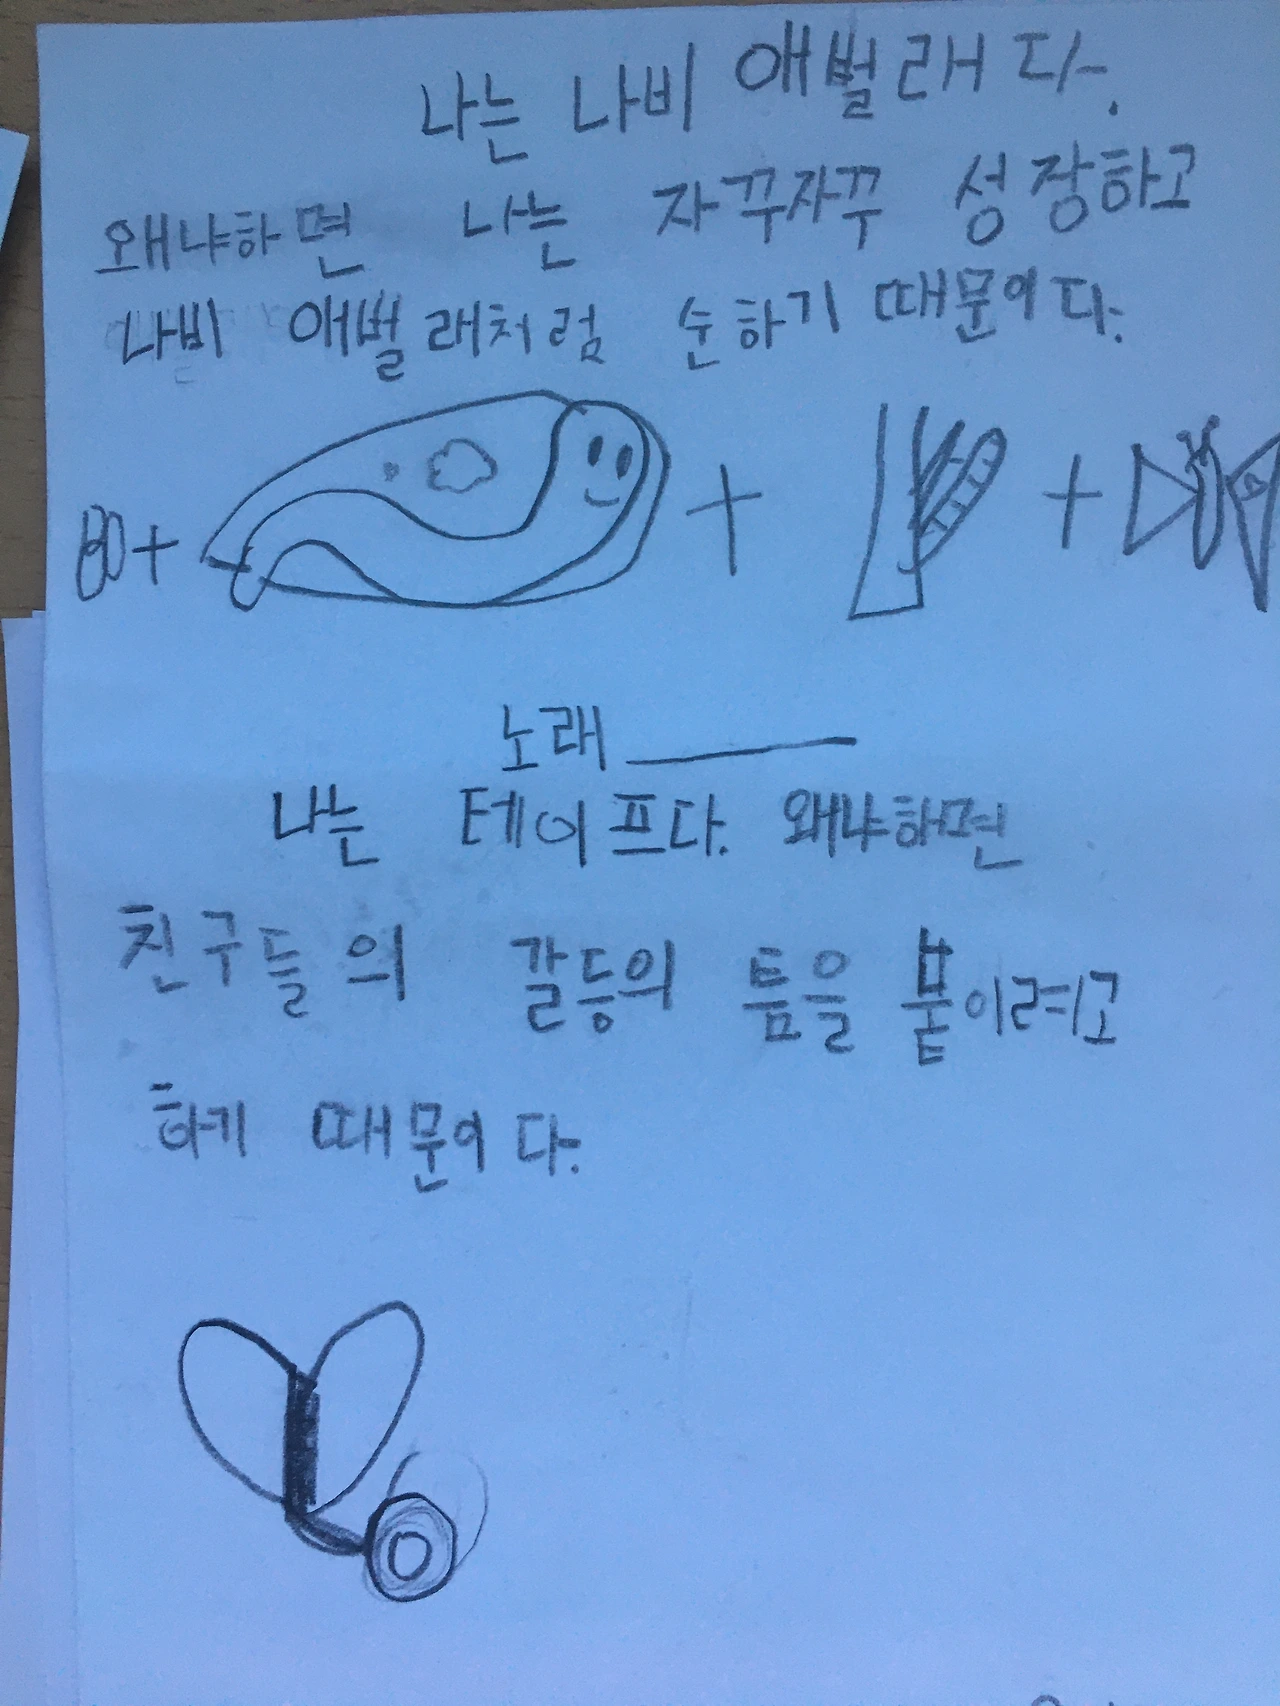 나는 나비 애벌래다.
왜냐하면 나는 자꾸자꾸 성장하고
나비 애벌래처럼 순하기 때문이다.
노래
나는 테이프다. 왜냐하면
친구들의 갈등의 틈을 붙이려고
하기 때문이다.